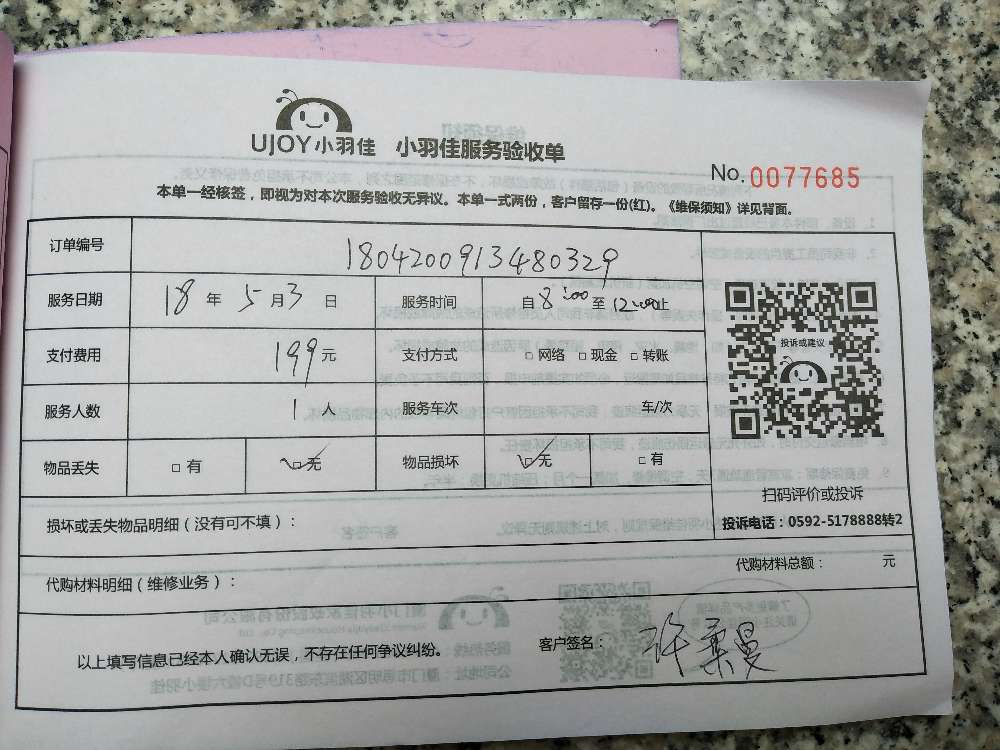 UJOY小羽佳 小羽佳服务验收单
No. 0077685
本单一经核签，即视为对本次服务验收无异议。本单一式两份，客户留存一份(红)。《维保须知》详见背面。
订单编号 1804200913480329
服务日期 18 年 5 月 3 日 服务时间 自 8:00 至 12:00 止
支付费用 199 元 支付方式 □ 网络 □ 现金 □ 转账
服务人数 1 人 服务车次 车/次
物品丢失 □ 有 ☑ 无 物品损坏 ☑ 无 □ 有
投诉或建议
扫码评价或投诉
投诉电话：0592-5178888转2
损坏或丢失物品明细（没有可不填）：
代购材料明细（维修业务）： 代购材料总额： 元
以上填写信息已经本人确认无误，不存在任何争议纠纷。 客户签名：